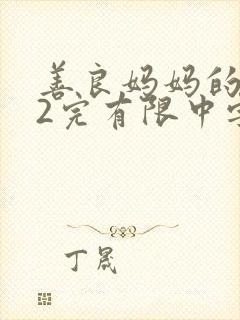 善良妈妈的
2完有限中字
丁晟